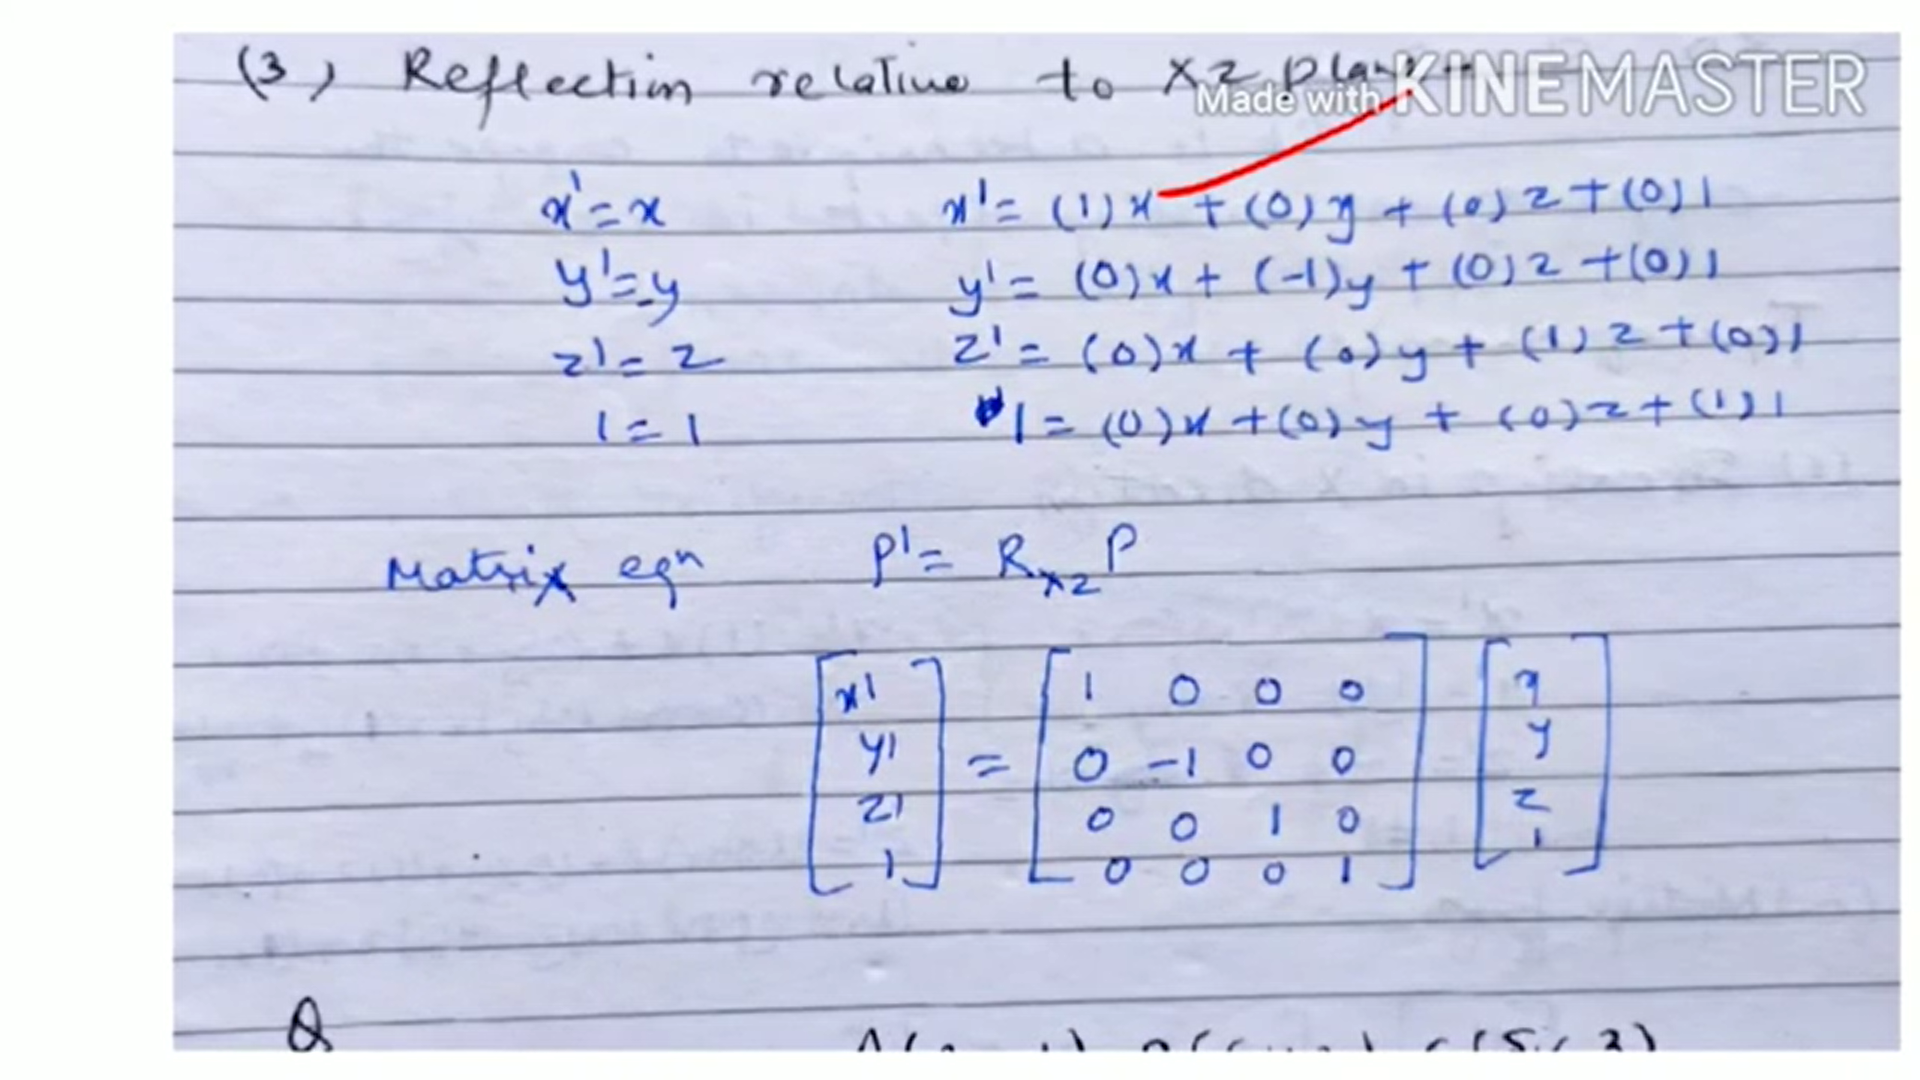 (3) Reflection relative to XZ plane
Made with KINEMASTER
x' = x x' = (1)x + (0)y + (0)z + (0)1
y' = -y y' = (0)x + (-1)y + (0)z + (0)1
z' = z z' = (0)x + (0)y + (1)z + (0)1
1 = 1 1 = (0)x + (0)y + (0)z + (1)1
Matrix eqn P' = Rxz P
x' 1 0 0 0 x
y' = 0 -1 0 0 y
z' 0 0 1 0 z
1 0 0 0 1 1
Q